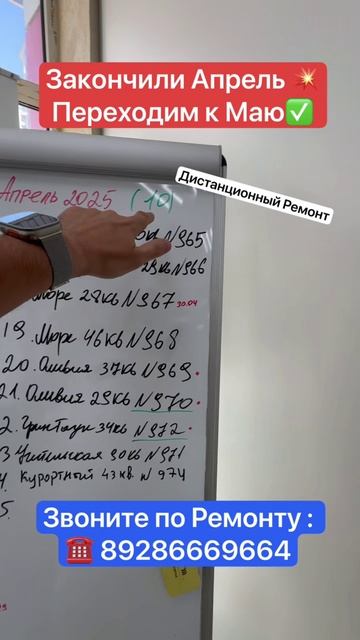 Закончили Апрель 💥
Переходим к Маю✅
Дистанционный Ремонт
Апрель 2025 (10)
N965
29кв N966
Море 28кв N967 30.04
19. Море 46кв N968
20. Оливия 37кв N969
21. Оливия 29кв N970
2. ГринТаун 34кв N972
3 30кв N971
Курортный 43кв. N974
5.
Звоните по Ремонту :
☎️ 89286669664